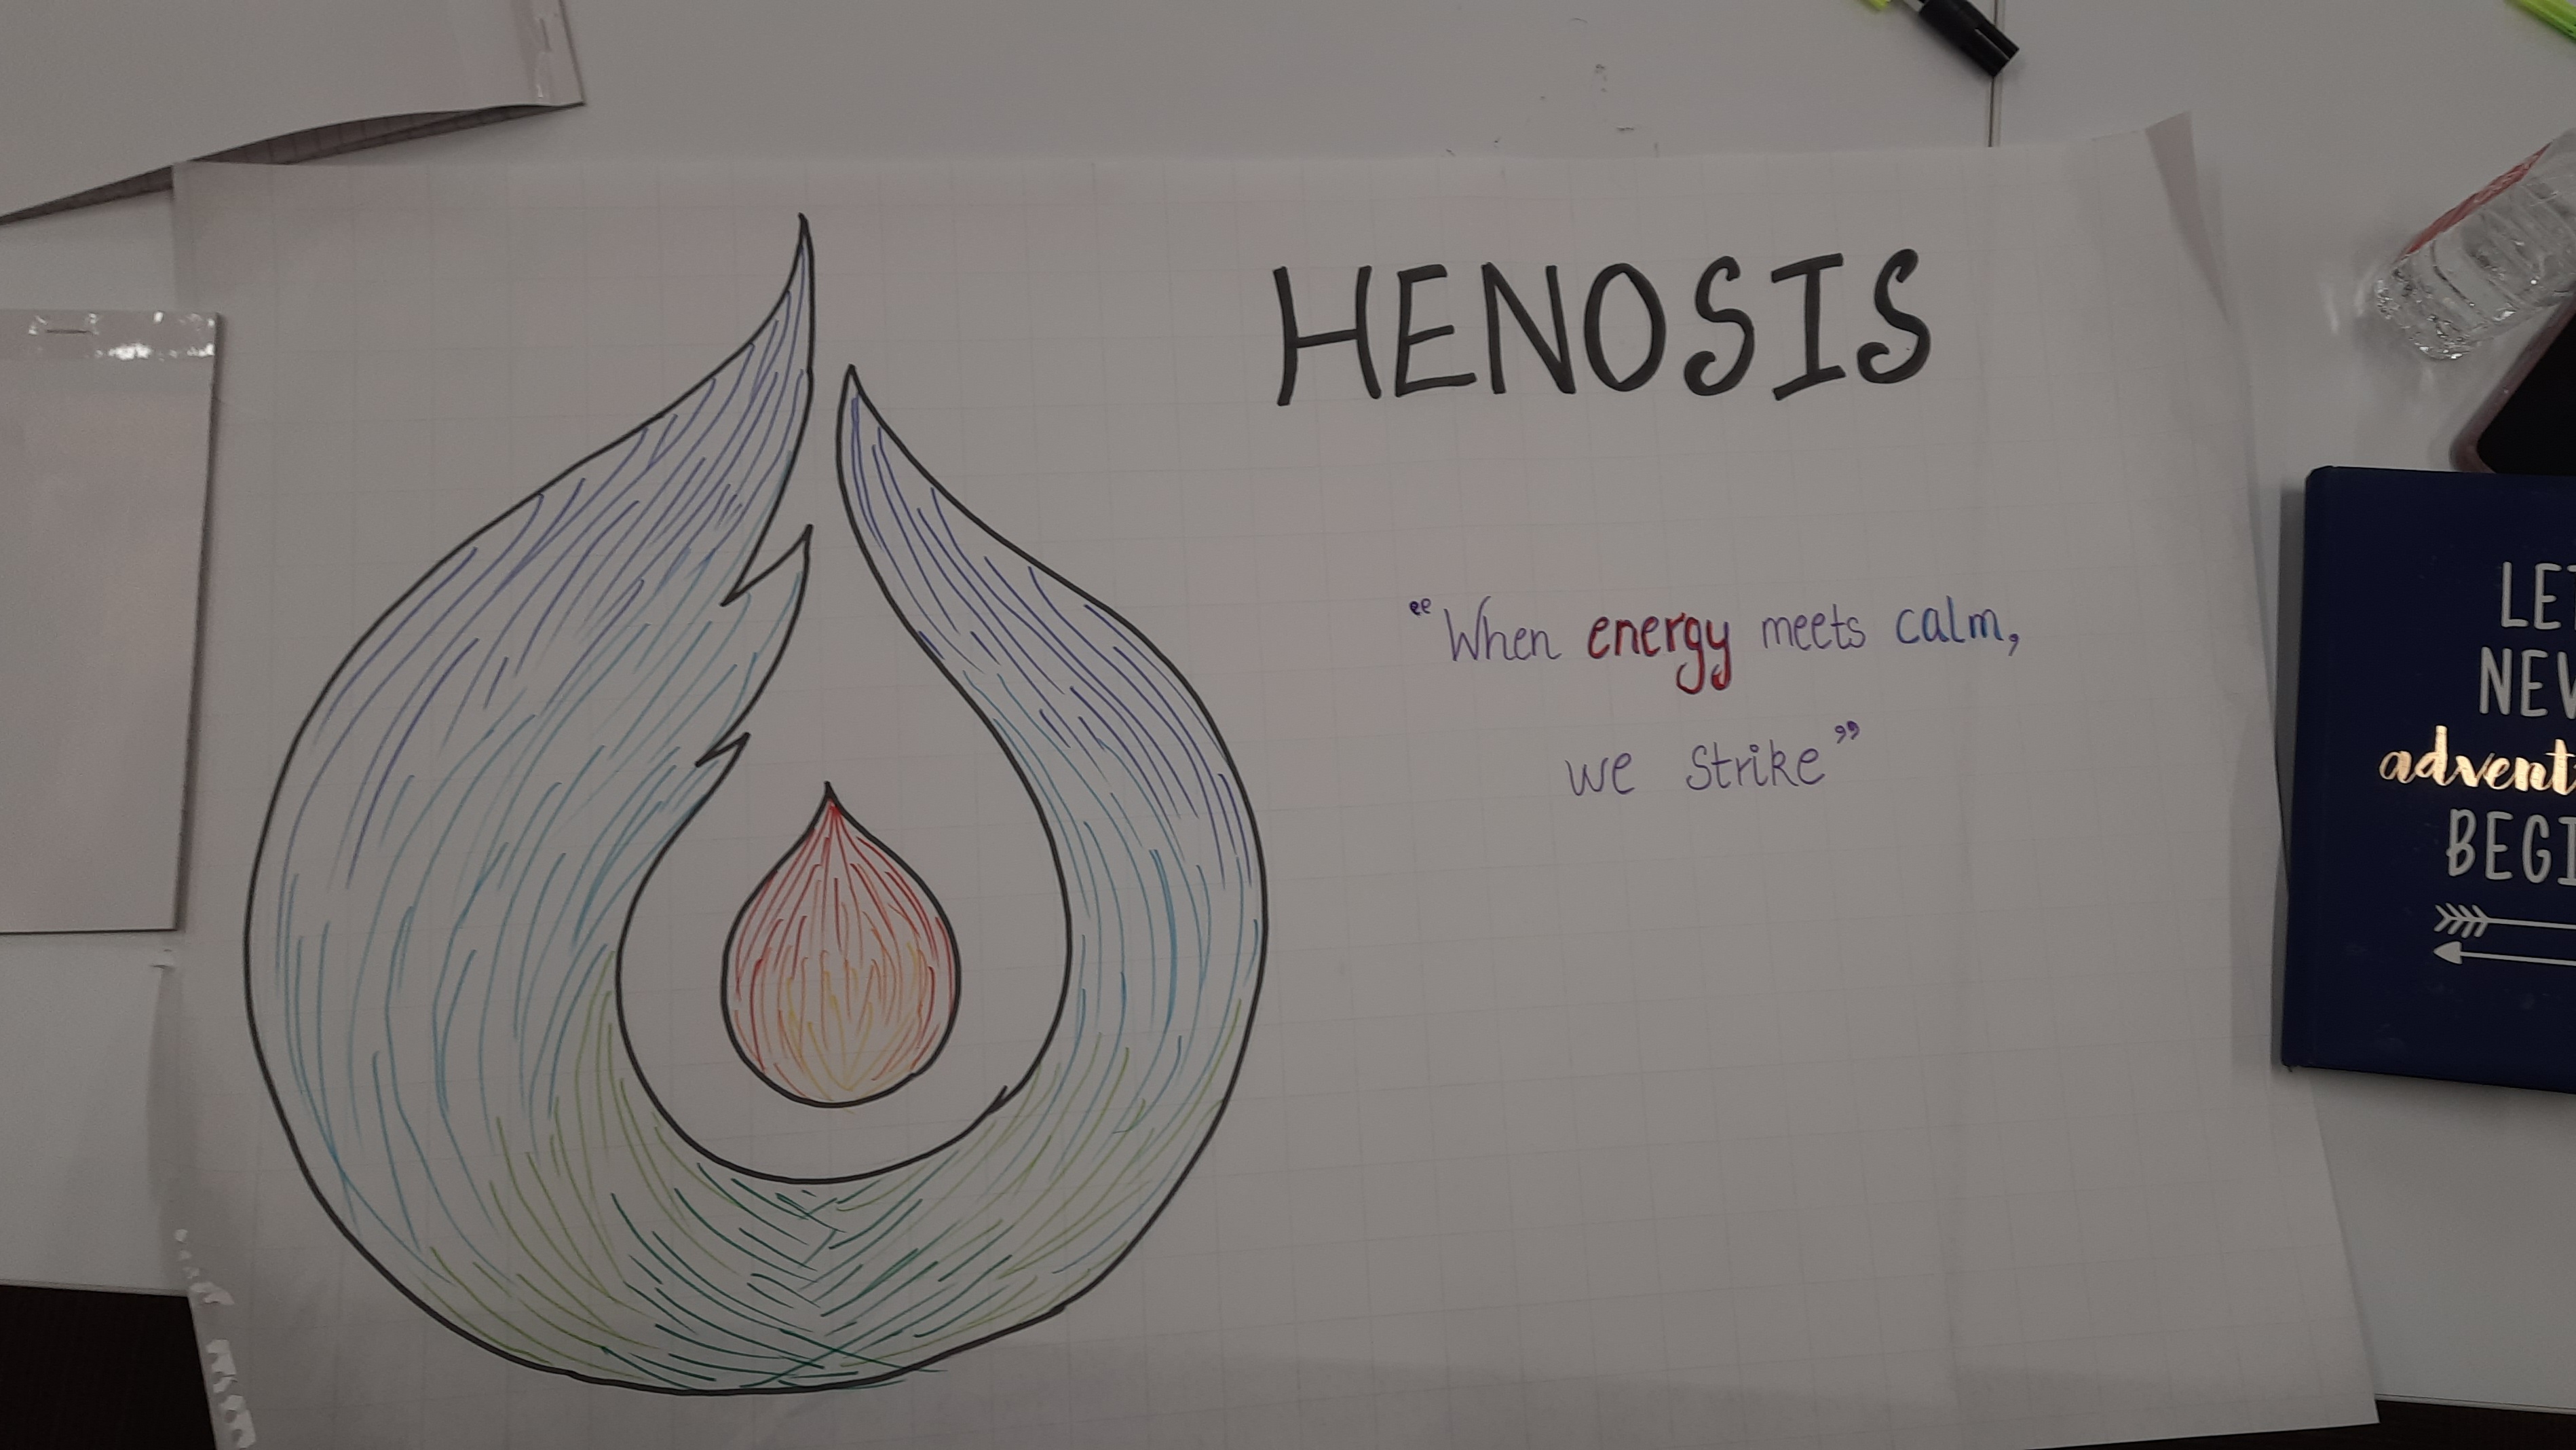 HENOSIS
"When energy meets calm,
we strike"
advent
BEGI